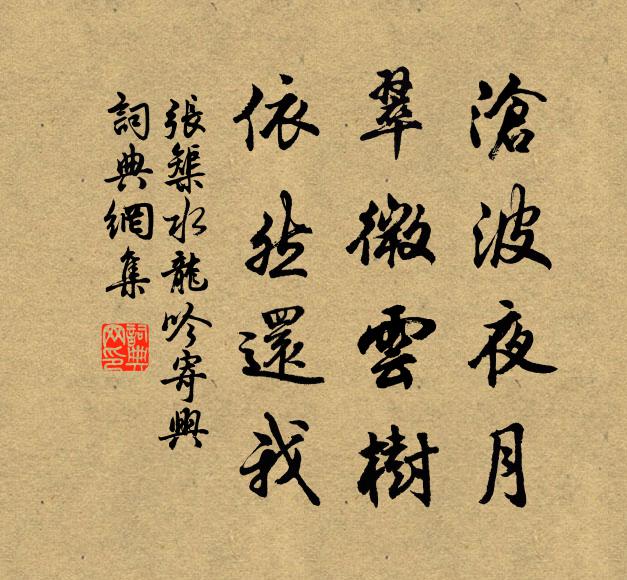 滄波夜月
翠微雲樹
依然還我
張榘水龍吟寄興
詞典網集
詞典
网印